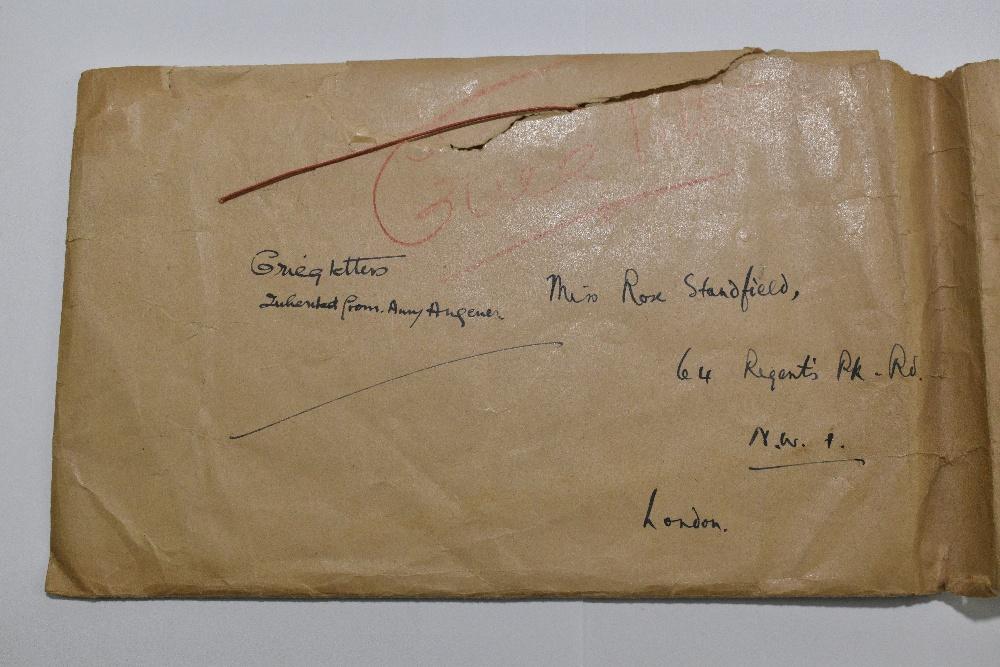 Grieg
Grieg letters
Inherited from Amy Augener
Miss Rose Standfield,
64 Regent's Pk. Rd.
N.W. 1.
London.